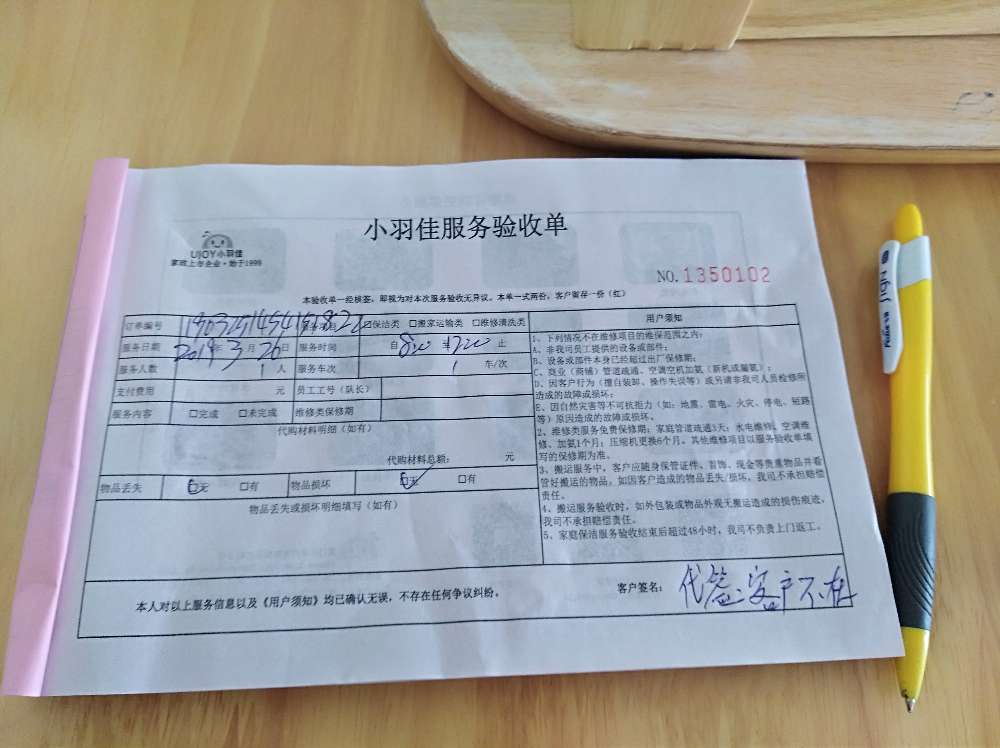 小羽佳服务验收单
UJOY小羽佳
家政上市企业·始于1999
NO.1350102
本验收单一经核签，即视为对本次服务验收无异议。本单一式两份，客户留存一份（红）
订单编号 服务项目 ☑保洁类 □搬家运输类 □维修清洗类
服务日期 2019年3月26日 服务时间 自800至1200止
服务人数 1人 服务车次 1 车/次
支付费用 元 员工工号（队长）
服务内容 □完成 □未完成 维修类保修期
代购材料明细（如有）
代购材料总额： 元
物品丢失 ☑无 □有 物品损坏 ☑无 □有
物品丢失或损坏明细填写（如有）
用户须知
1、下列情况不在维修项目的维保范围之内：
A、非我司员工提供的设备或部件；
B、设备或部件本身已经超过出厂保修期；
C、商业（商铺）管道疏通、空调空机加氨（新机或漏氨）；
D、因客户行为（擅自装卸、操作失误等）或另请非我司人员检修所
造成的故障或损坏；
E、因自然灾害等不可抗拒力（如：地震、雷电、火灾、停电、短路
等）原因造成的故障或损坏。
2、维修类服务免费保修期：家庭管道疏通3天；水电维修、空调维
修、加氨1个月；压缩机更换6个月。其他维修项目以服务验收单填
写的保修期为准。
3、搬运服务中，客户应随身保管证件、首饰、现金等贵重物品并看
管好搬运的物品，如因客户造成的物品丢失/损坏，我司不承担赔偿
责任。
4、搬运服务验收时，如外包装或物品外观无搬运造成的损伤痕迹，
我司不承担赔偿责任。
5、家庭保洁服务验收结束后超过48小时，我司不负责上门返工。
本人对以上服务信息以及《用户须知》均已确认无误，不存在任何争议纠纷。
客户签名： 代签：客户不在